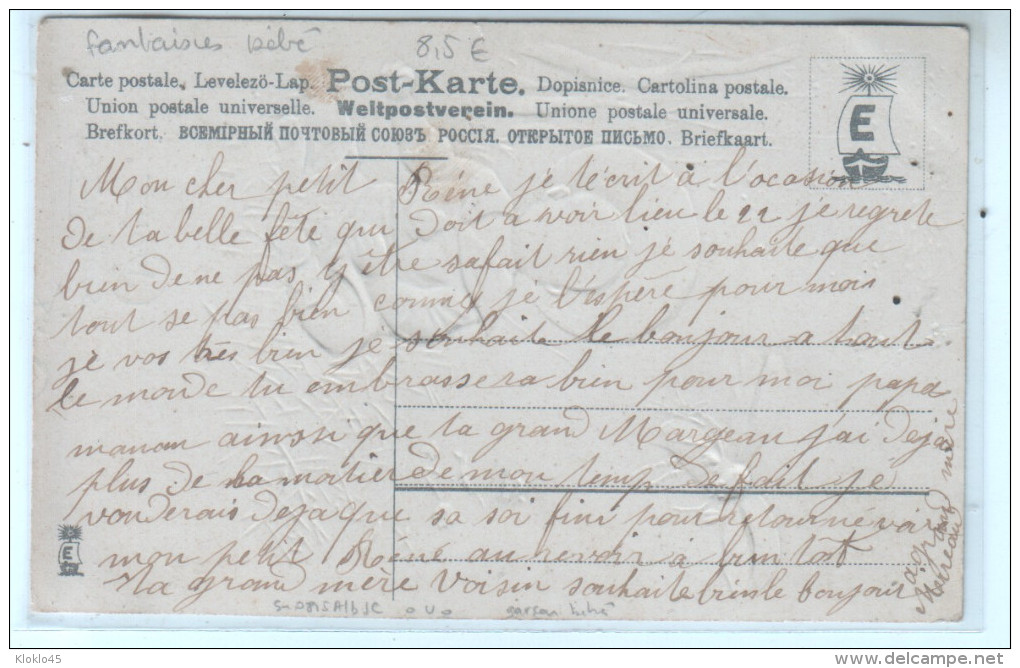 fantaisies bébé 8,5 €
Carte postale. Levelezö-Lap. Post-Karte. Dopisnice. Cartolina postale.
Union postale universelle. Weltpostverein. Unione postale universale.
Brefkort. ВСЕМІРНЫЙ ПОЧТОВЫЙ СОЮЗЪ РОССІЯ. ОТКРЫТОЕ ПИСЬМО. Briefkaart.
E
Mon cher petit Réné je t'écrit à l'ocasion
de ta belle fête qui doit a voir lieu le 22 je regrete
bien de ne pas y être sa fait rien je souhaite que
tout se pas bien comme je l'espère pour mois
je vos très bien je souhaite le bonjour a tout
le monde tu embrassera bien pour moi papa
maman ainsi que ta grand Margeau j'ai deja
plus de la moitier de mon temp de fait je
vouderais deja que sa soi fini pour retourné voir
mon petit Réné au revoir à bientot
ta grand mère Voisin souhaite bien le bonjour
a grand mère
Metreau
E
garson bébé
Kloklo45